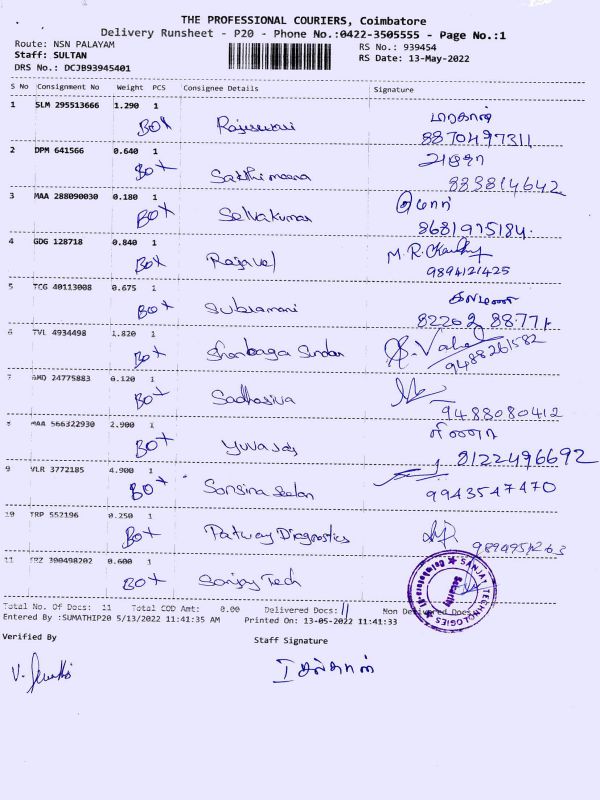 THE PROFESSIONAL COURIERS, Coimbatore
Delivery Runsheet - P20 - Phone No.:0422-3505555 - Page No.:1
Route: NSN PALAYAM RS No.: 939454
Staff: SULTAN RS Date: 13-May-2022
DRS No.: DCJB93945401
S No Consignment No Weight PCS Consignee Details Signature
1 SLM 295513666 1.290 1
BOX Rajeswari 8870497311
2 DPM 641566 0.640 1
BOX Sakthi meena 883814642
3 MAA 288090030 0.180 1 குமார்
BOX Selvakumar 8681975184.
4 GDG 128718 0.840 1 M.R.
BOX Rajavel 9894121425
5 TCG 40113008 0.675 1
BOX Subramani 82202 88771
6 TVL 4934498 1.820 1
BOX Shanbaga Sundar 9488261582
7 AMD 24775883 0.120 1
BOX Sadhasiva 9488080412
8 MAA 566322930 2.900 1
BOX Yuvaraj 8122496692
9 VLR 3772185 4.900 1
BOX 9943547470
10 TRP 557196 0.250 1
BOX Diagnostics
11 TRZ 300498202 0.600 1
BOX Sanjay Tech
SANJAY TECHNOLOGIES
Security
Total No. Of Docs: 11 Total COD Amt: 0.00 Delivered Docs: 11 Non Delivered Docs
Entered By :SUMATHIP20 5/13/2022 11:41:35 AM Printed On: 13-05-2022 11:41:33
Verified By Staff Signature